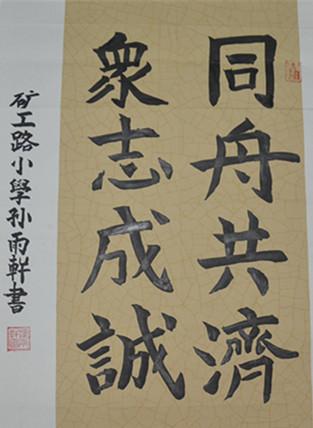 同舟共濟
衆志成誠
矿工路小學孙雨軒書